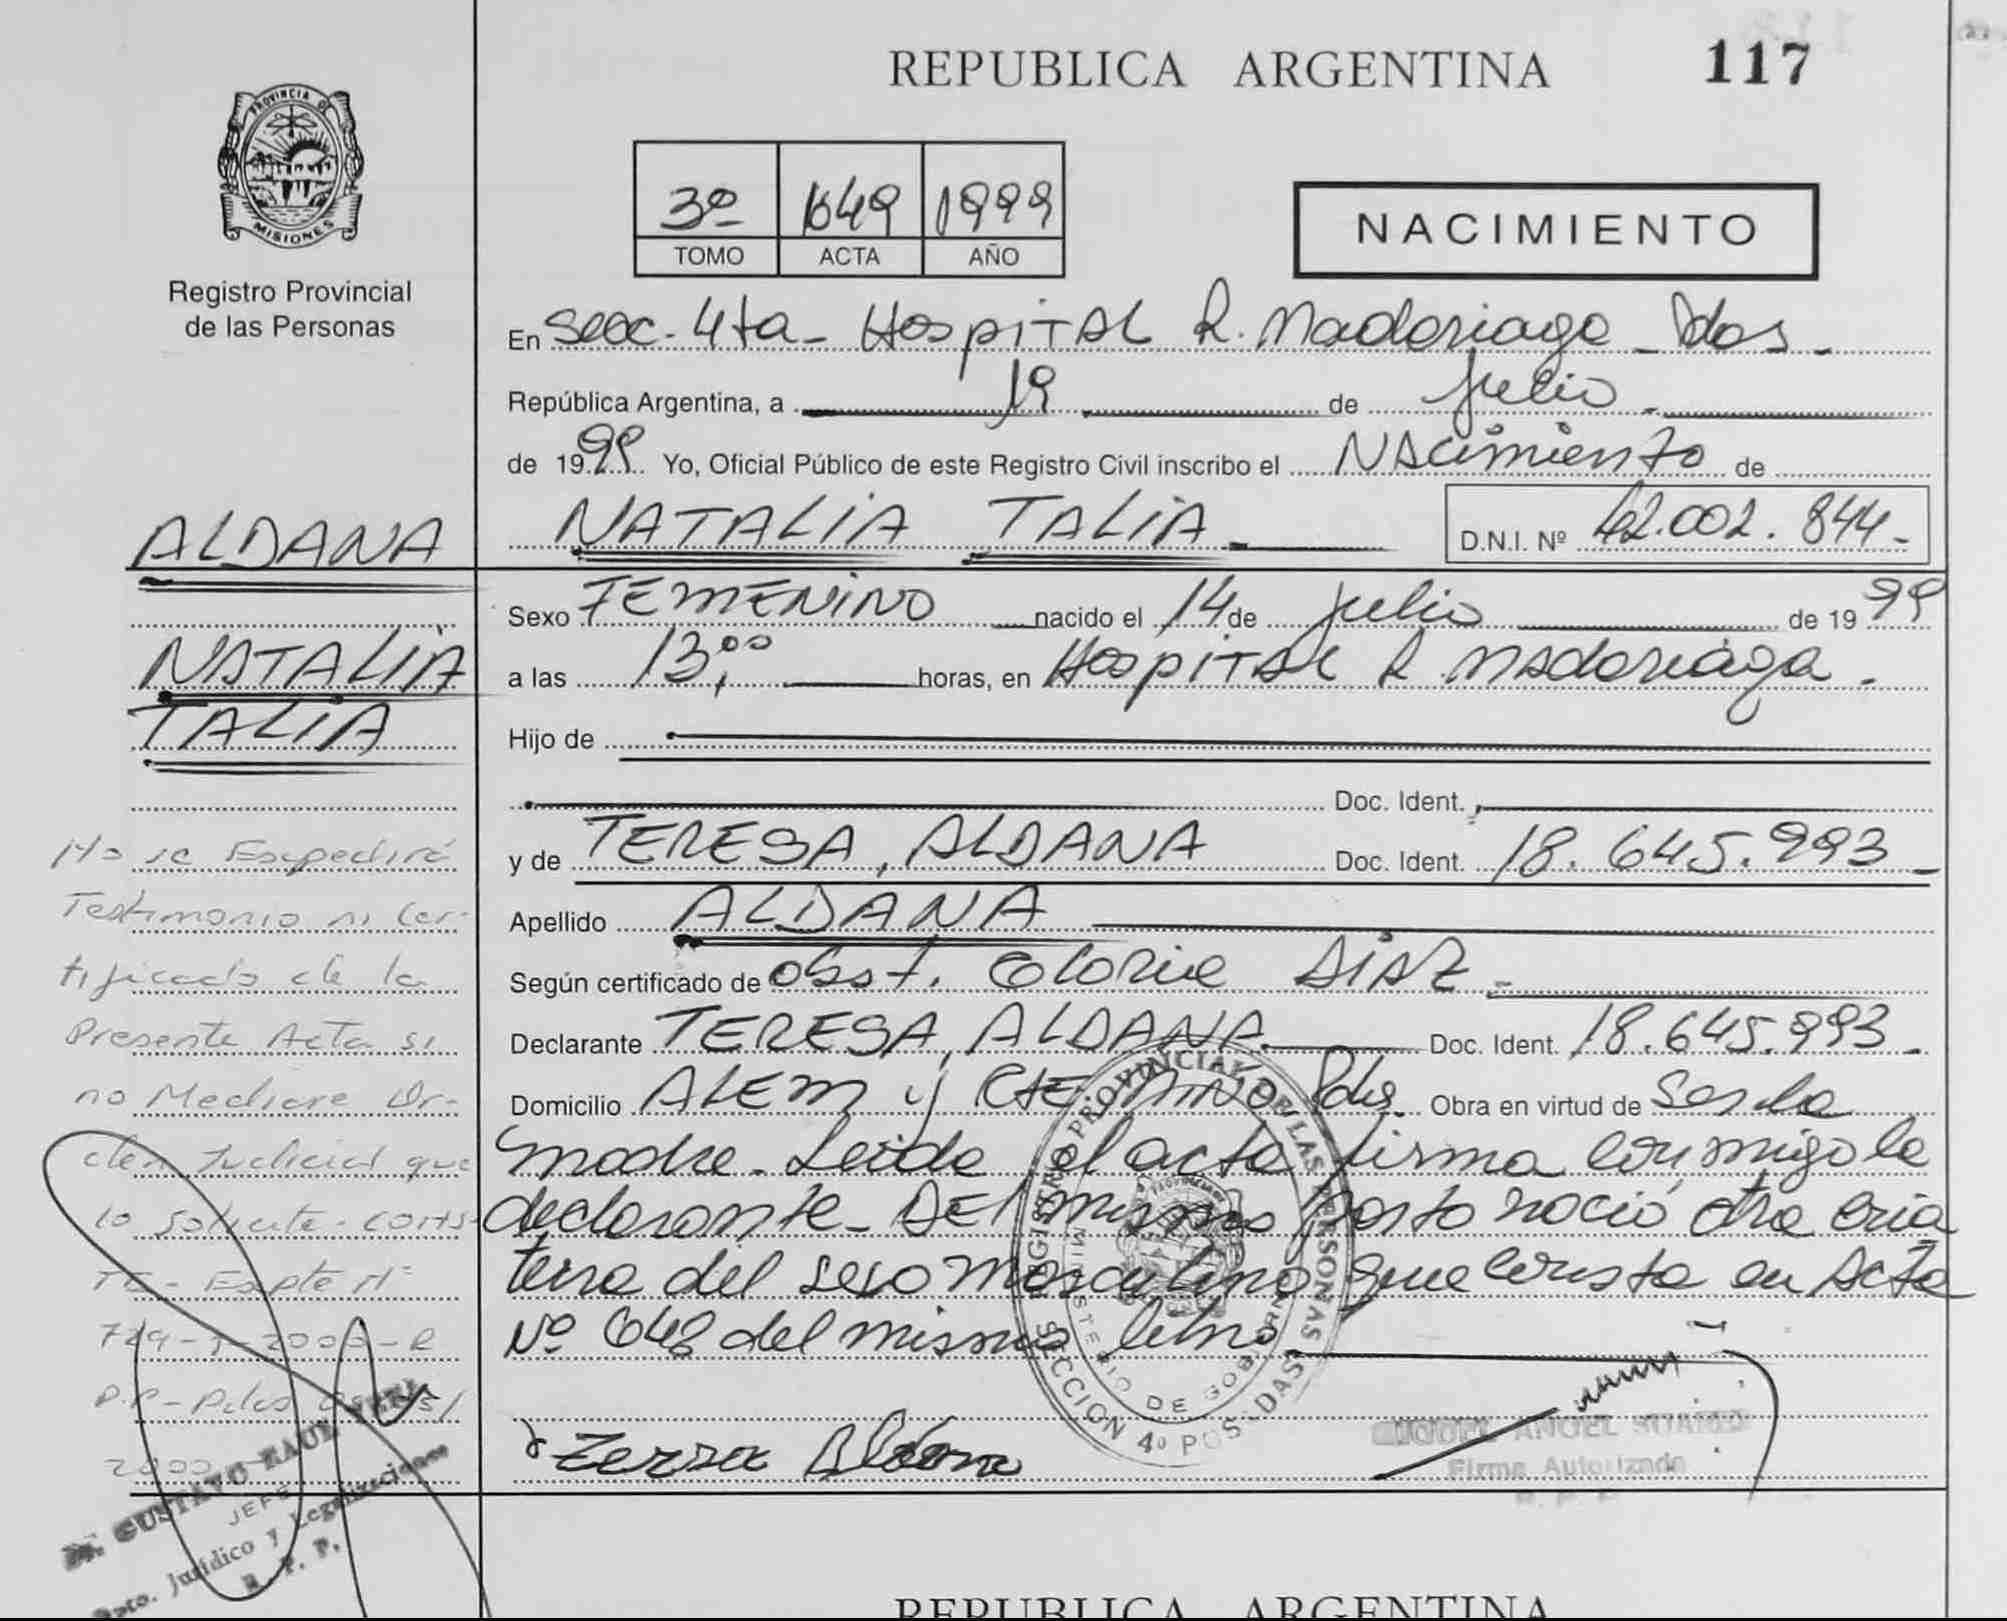 REPUBLICA ARGENTINA 117
PROVINCIA DE
MISIONES
Registro Provincial
de las Personas
3º 649 1999
TOMO ACTA AÑO
NACIMIENTO
En Secc. 4ta - Hospital R. Madariaga - Pdas -
República Argentina, a 19 de julio
de 1999 Yo, Oficial Público de este Registro Civil inscribo el Nacimiento de
NATALIA TALIA D.N.I. Nº 42.002.844-
Sexo FEMENINO nacido el 14 de julio de 1999
a las 13,00 horas, en Hospital R. Madariaga.
Hijo de
Doc. Ident.
y de TERESA, ALDANA Doc. Ident. 18.645.993
Apellido ALDANA
Según certificado de Obst. Gloria DIAZ
Declarante TERESA, ALDANA Doc. Ident. 18.645.993
Domicilio ALEM y Cte MIÑO Pdas. Obra en virtud de Ser la
madre. Leída el acta firma conmigo la
declarante. Del mismo parto nació otra cria
tura del sexo masculino que consta en Acta
Nº 648 del mismo libro
Teresa Aldana
MIGUEL ANGEL
Firma Autorizada
REGISTRO PROVINCIAL DE LAS PERSONAS
MINISTERIO DE GOBIERNO
SECCION 4º POSADAS
ALDANA
NATALIA
TALIA
No se Expedirá
Testimonio ni Cer-
tificado de la
Presente Acta si
no Mediare Or-
den Judicial que
lo solicite. Cons-
te - Expte Nº
729- -2000-R
R.P.P - Pdas
2000
Dr. GUSTAVO RAUL
JEFE
Dpto. Jurídico y Legalizaciones
R. P. P.
REPUBLICA ARGENTINA